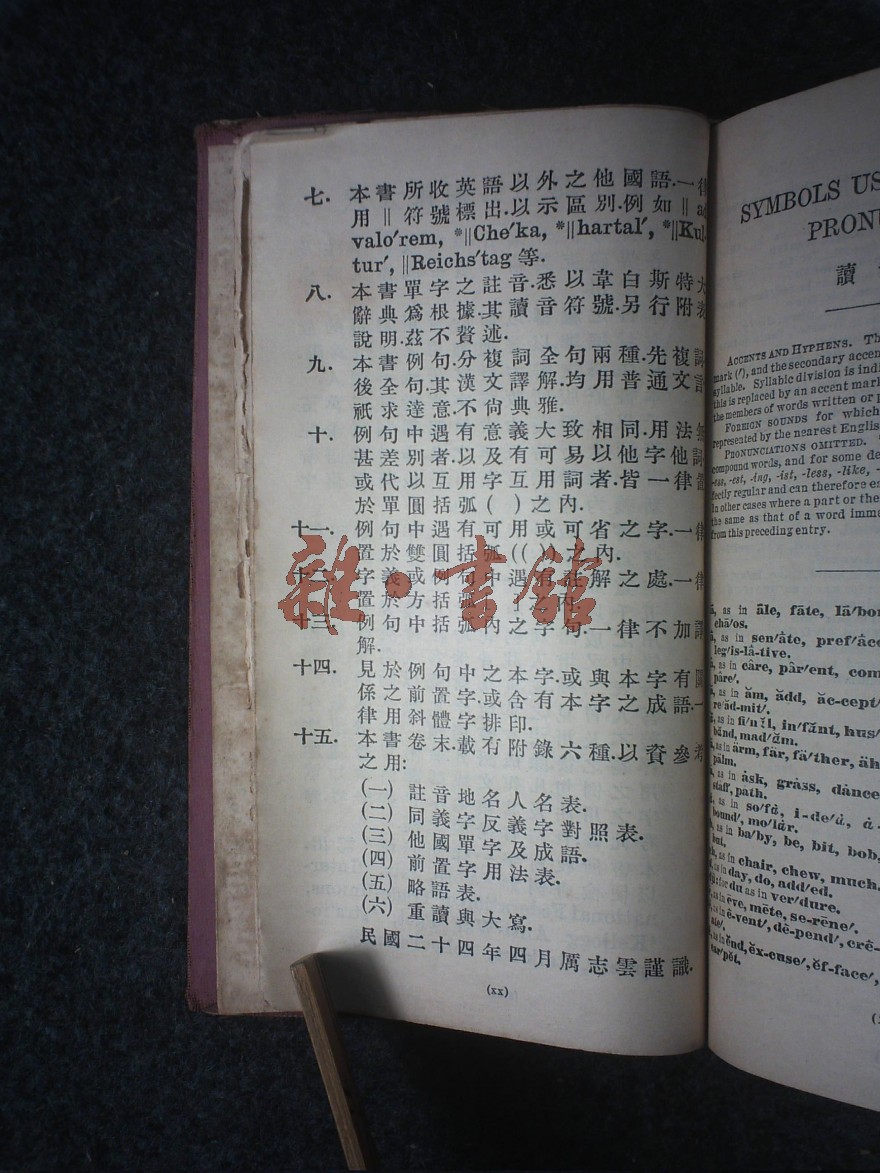 七. 本書所收英語以外之他國語.一律
用 ‖ 符號標出.以示區別.例如 ‖ ad
valo′rem, *‖Che′ka, *‖hartal′, *‖Kul-
tur′, ‖Reichs′tag 等.
八. 本書單字之註音.悉以韋白斯特大
辭典爲根據.其讀音符號.另行附表
說明.茲不贅述.
九. 本書例句.分複詞全句兩種.先複詞
後全句.其漢文譯解.均用普通文言
祇求達意.不尙典雅.
十. 例句中遇有意義大致相同.用法無
甚差別者.以及有可易以他字他詞
或代以互用字互用詞者.皆一律置
於單圓括弧 ( ) 之內.
十一. 例句中遇有可用或可省之字.一律
置於雙圓括弧 (( )) 之內.
十二. 字義或例句中遇有註解之處.一律
置於方括弧 內.
十三. 例句中括弧內之字句.一律不加譯
解.
十四. 見於例句中之本字.或與本字有關
係之前置字.或含有本字之成語.一
律用斜體字排印.
十五. 本書卷末.載有附錄六種.以資參考
之用:
(一) 註音地名人名表.
(二) 同義字反義字對照表.
(三) 他國單字及成語.
(四) 前置字用法表.
(五) 略語表.
(六) 重讀與大寫.
民國二十四年四月厲志雲謹識.
(xx)
雜·書館
SYMBOLS US
PRONU
讀
ACCENTS AND HYPHENS. Th
mark (′), and the secondary accen
syllable. Syllabic division is indi
this is replaced by an accent mark
the members of words written or p
FOREIGN SOUNDS for which
represented by the nearest English
PRONUNCIATIONS OMITTED.
compound words, and for some de
-ess, -est, -ing, -ist, -less, -like, -
fectly regular and can therefore ea
In other cases where a part or the
the same as that of a word imme
from this preceding entry.
ā, as in āle, fāte, lā′bor
chā′os.
as in sen′âte, pref′âce
leg′is-lâ-tive.
as in câre, pâr′ent, com
pâre′.
as in ăm, ădd, ăc-cept′
re′ăd-mit′.
as in fi′năl, in′fănt, hus′
bănd, mad′ăm.
as in ärm, fär, fä′ther, äh
pälm.
as in ȧsk, grȧss, dȧnce
stȧff, pȧth.
as in so′fȧ, i-de′ȧ, ȧ-
bound′, mo′lȧr.
as in ba′by, be, bit, bob,
but.
as in chair, chew, much.
as in day, do, add′ed.
for du as in ver′dure.
as in ēve, mēte, se-rēne′
as in ê-vent′, dê-pend′, crê-
ate′.
as in ĕnd, ĕx-cuse′, ĕf-face′,
car′pĕt.